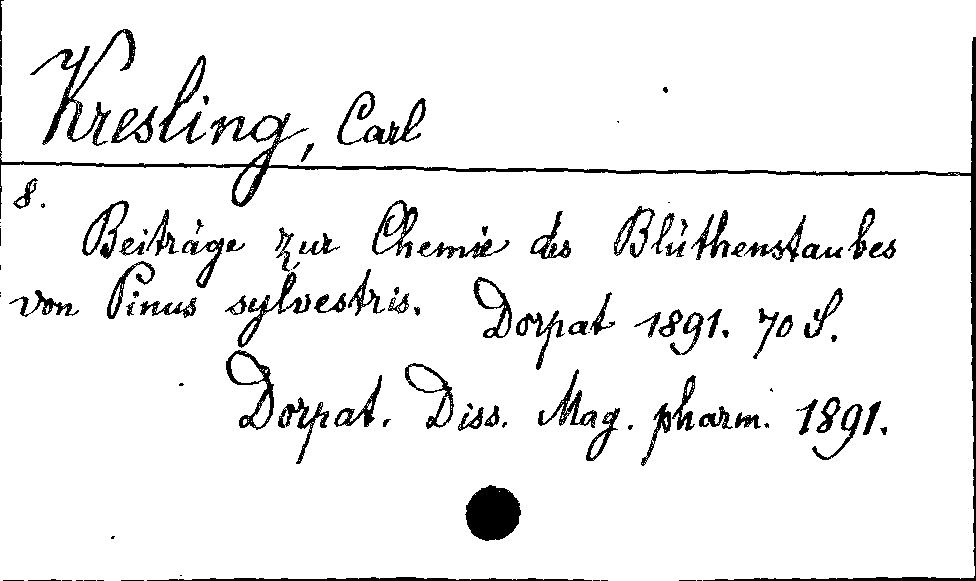 Kresling, Carl
8.
Beiträge zur Chemie des Blüthenstaubes
von Pinus sylvestris. Dorpat 1891. 70 S.
Dorpat. Diss. Mag. pharm. 1891.